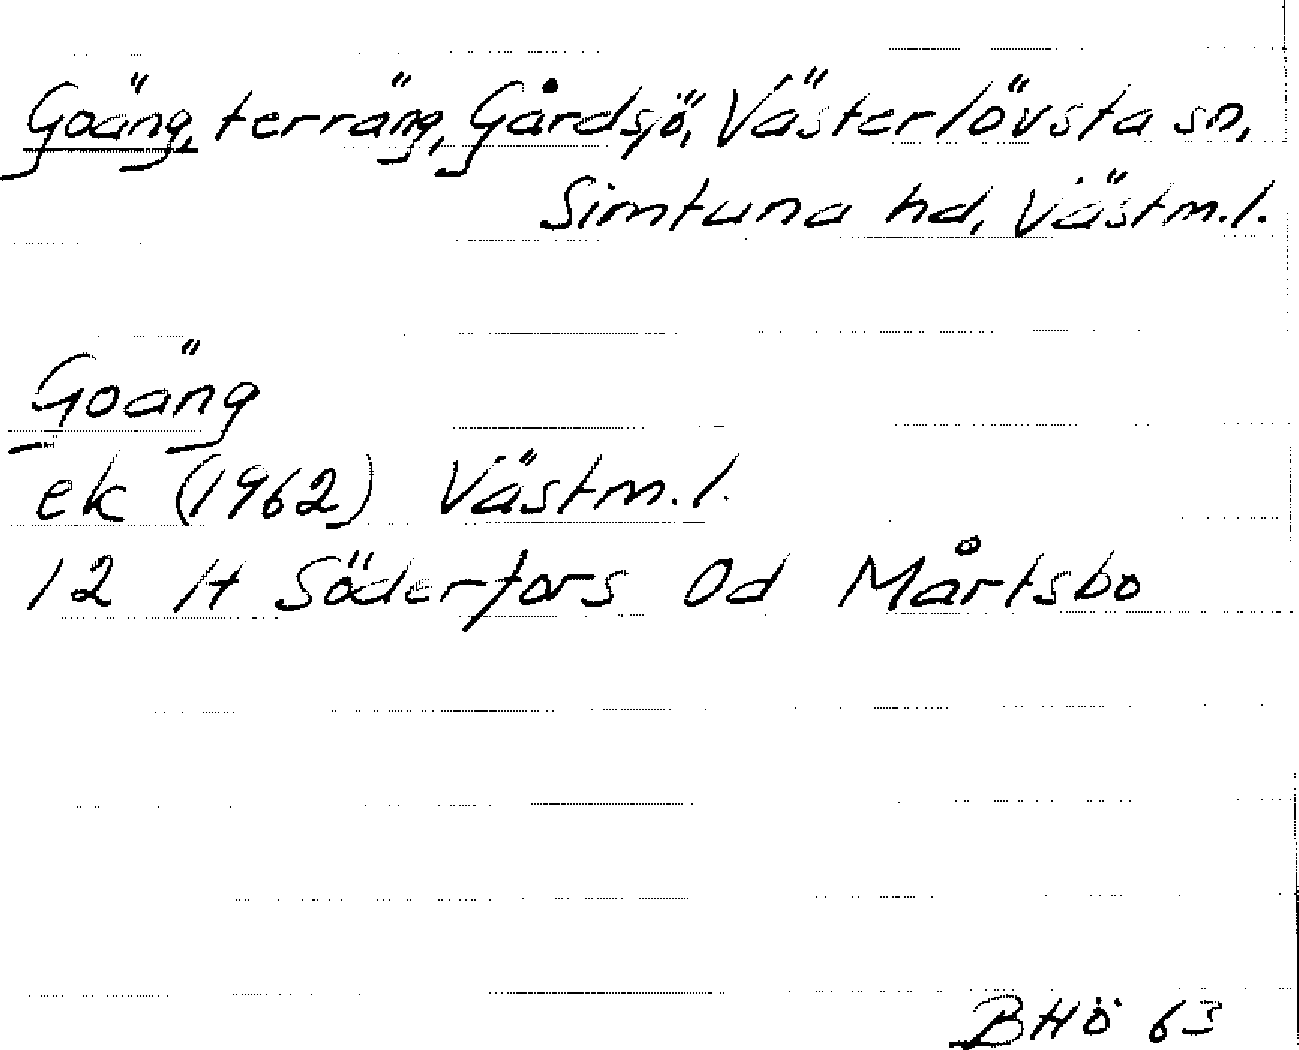 Goäng, terräng, Gårdsjö, Västerlövsta sn,
Simtuna hd, Västm.l.
Goäng
ek (1962) Västm.l.
12 H Söderfors 0d Mårtsbo
BHÖ 63